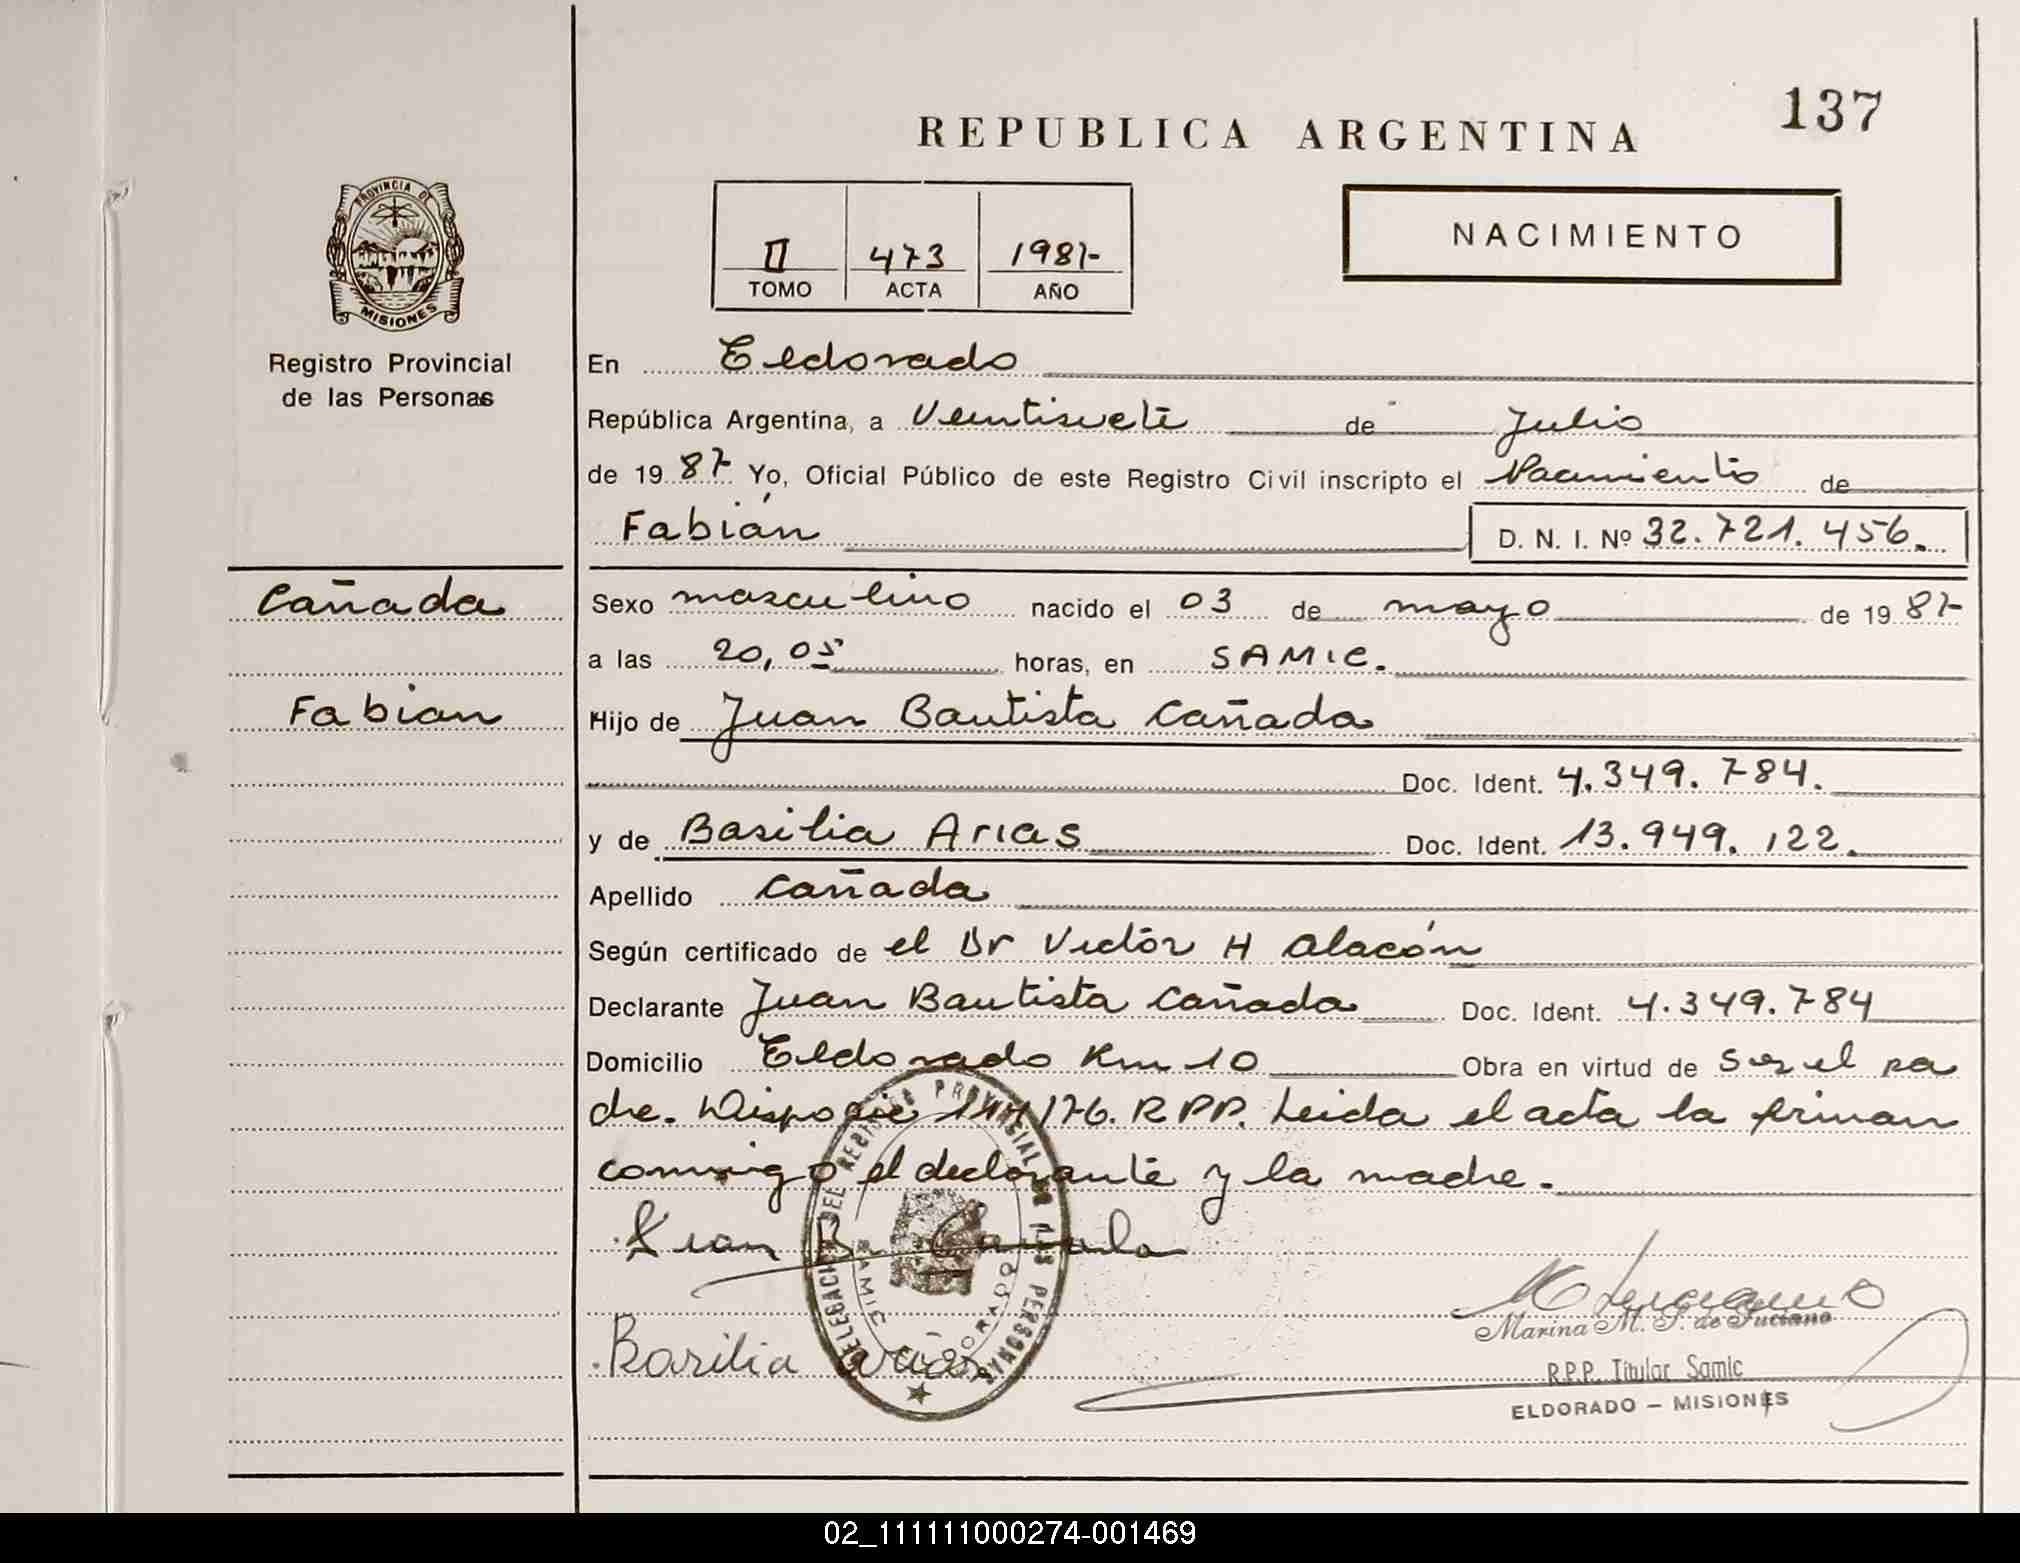 137
REPUBLICA ARGENTINA
PROVINCIA DE
MISIONES
Registro Provincial
de las Personas
II 473 1987-
TOMO ACTA AÑO
NACIMIENTO
En Eldorado
República Argentina, a Veintisiete de Julio
de 1987 Yo, Oficial Público de este Registro Civil inscripto el Nacimiento de
Fabián D. N. I. Nº 32.721.456.
Cañada
Fabian
Sexo masculino nacido el 03 de mayo de 1987
a las 20,05 horas, en SAMIC.
Hijo de Juan Bautista Cañada
Doc. Ident. 4.349.784.
y de Basilia Arias Doc. Ident. 13.949.122.
Apellido Cañada
Según certificado de el Dr Victor H Alacón
Declarante Juan Bautista Cañada Doc. Ident. 4.349.784
Domicilio Eldorado Km 10 Obra en virtud de ser el pa
dre. Disposic /76. R.P.P. Leida el acta la firman
conmigo el declarante y la madre.
Juan B. Cañada
DELEGACION DEL REGISTRO PROVINCIAL DE LAS PERSONAS
SAMIC
ELDORADO
Basilia Arias
Marina M. de Luciano
R.P.P. Titular Samic
ELDORADO – MISIONES
02_111111000274-001469